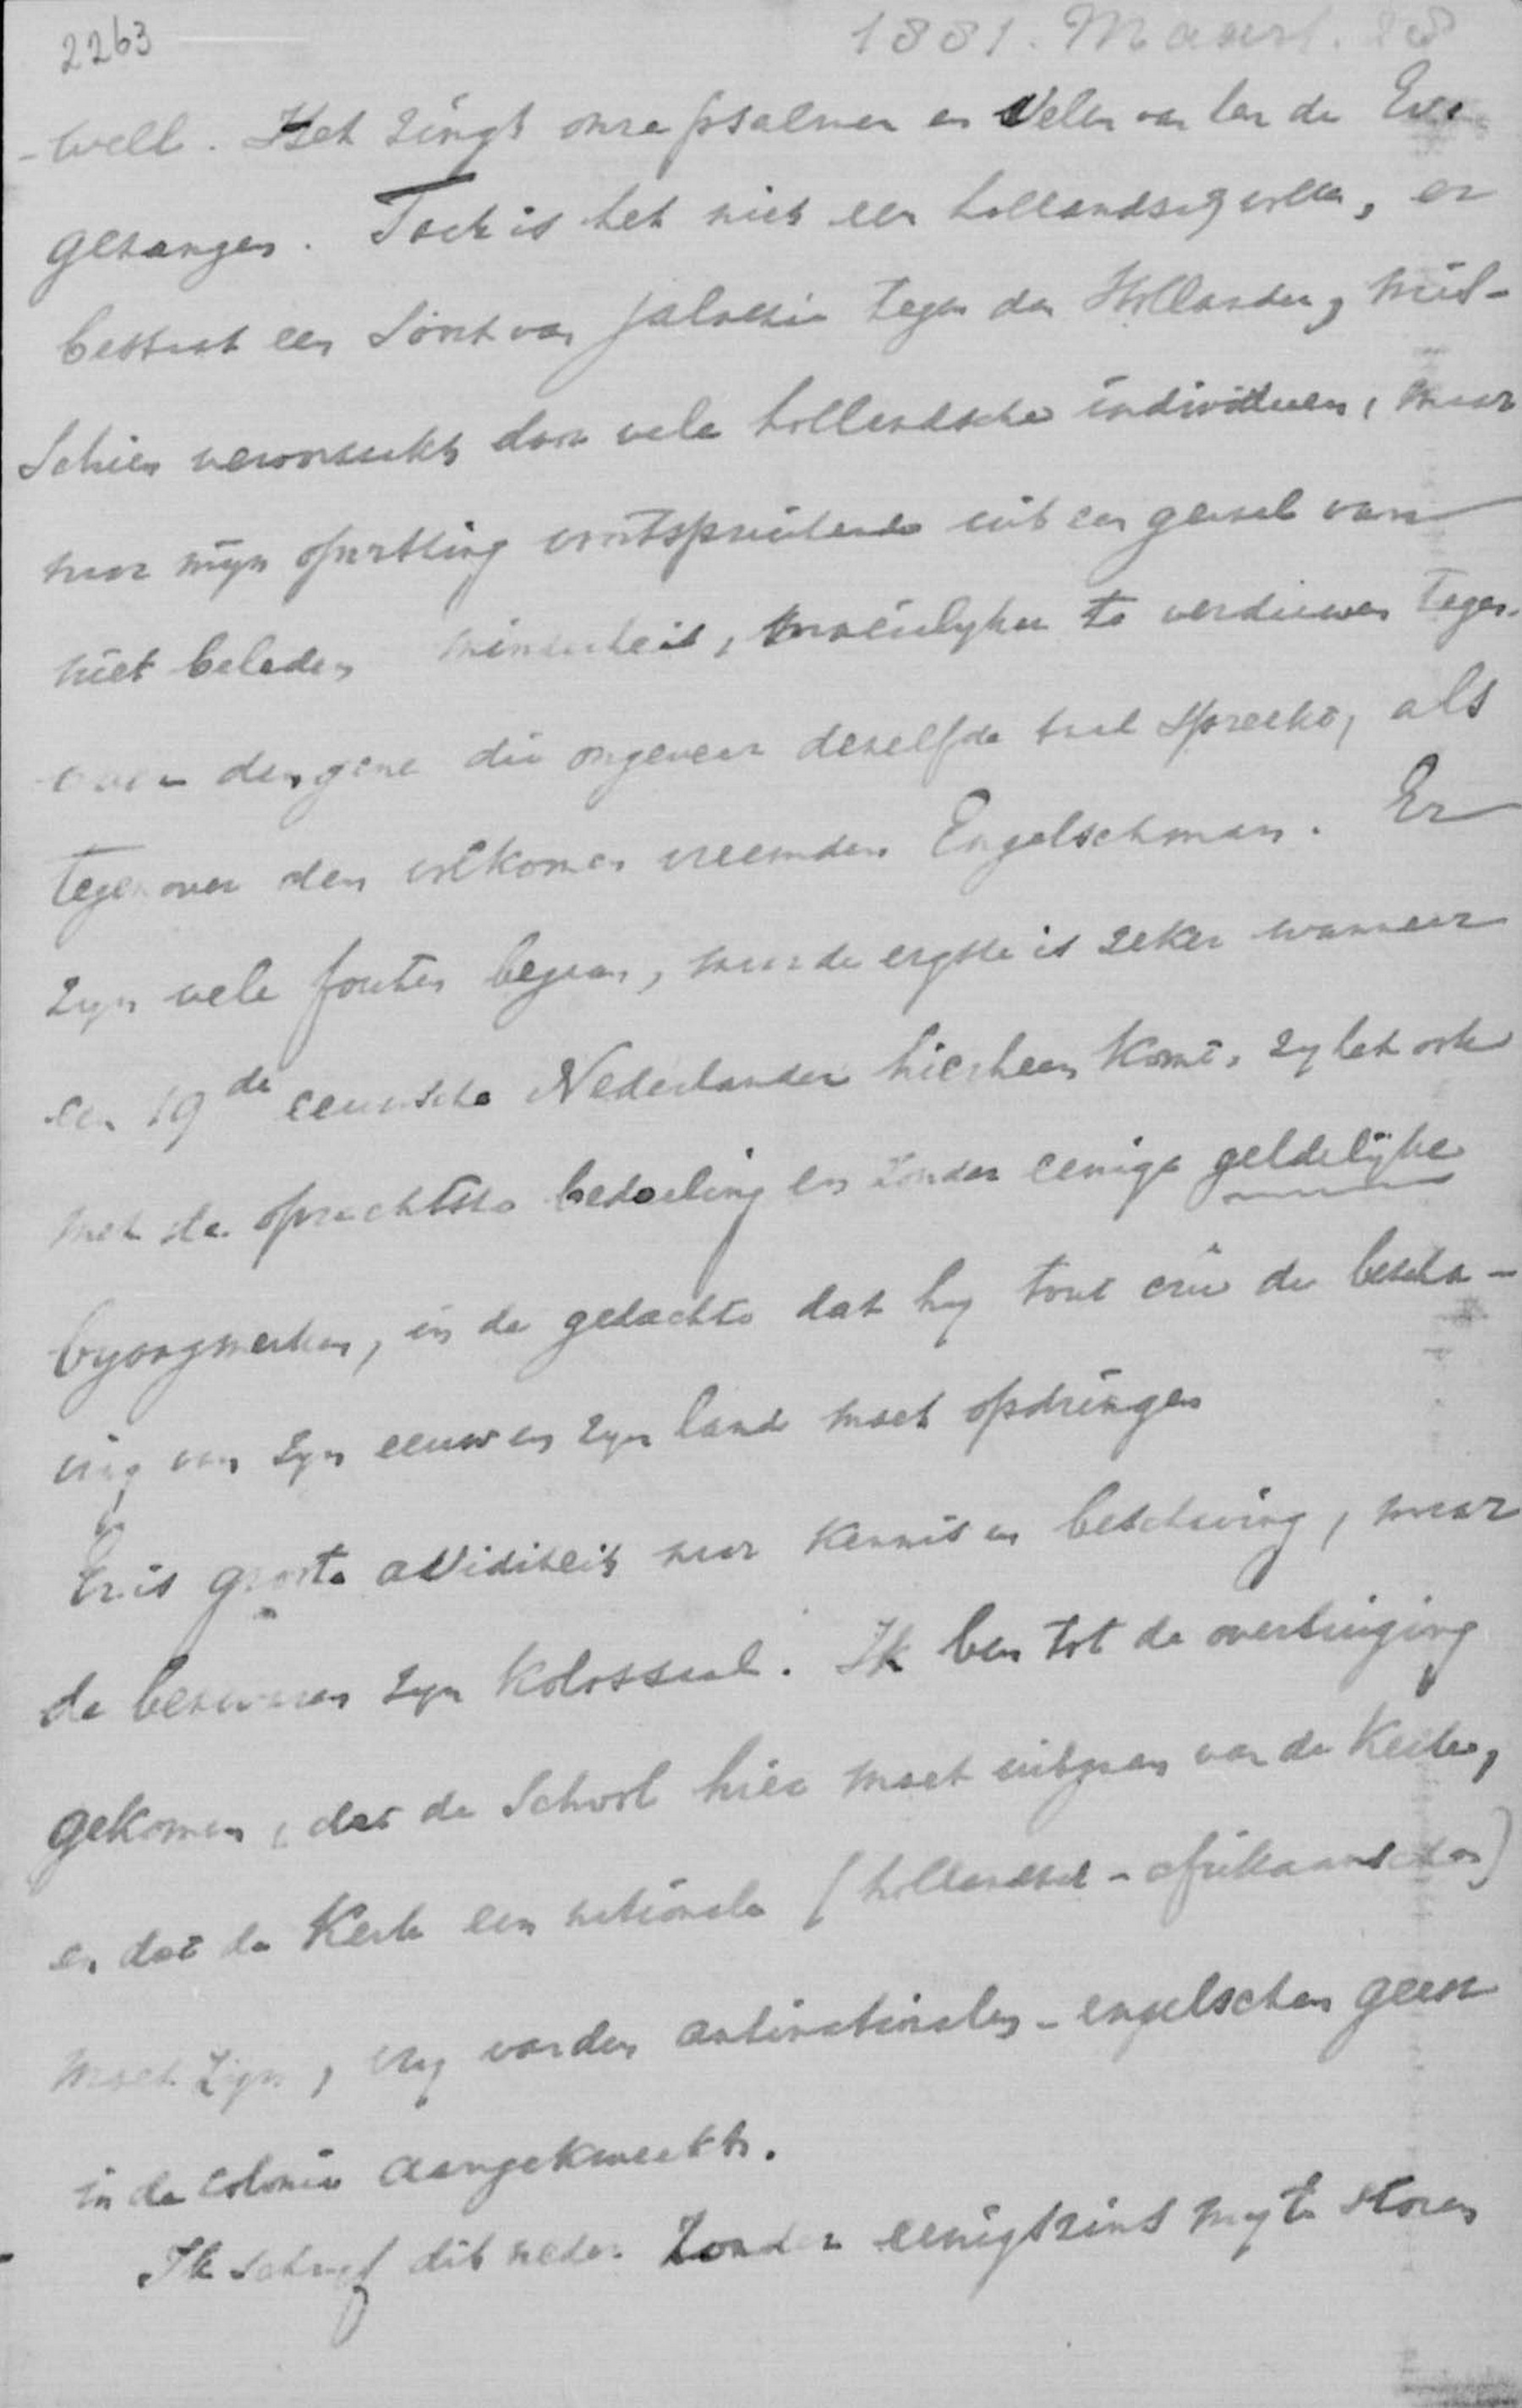 2263
1881. Maart. 28
-well. Het zingt onze psalmen en velen van hen de Eva
gezangen. Toch is het niet een hollandsch volk, er
bestaat een soort van jalousie tegen den Hollander, mis-
schien veroorzaakt door vele hollandsche individuen, maar
naar mijn opvatting voortspruitende uit een gevoel van
niet beleden minderheid, moeielyker te verduwen tegen-
over dengene die ongeveer dezelfde taal spreekt, als
tegenover den volkomen vreemden Engelschman. Er
zyn vele fouten begaan, maar de ergste is zeker wanneer
een 19de eeuwsche Nederlander hierheen komt, zy het ook
met de oprechtste bedoeling en zonder eenige geldelijke
byoogmerken, in de gedachte dat hy tout crû de bescha-
ving van zyn eeuw en zyn land moet opdringen
Er is groote aviditeit naar kennis en beschaving, maar
de bezwaren zyn kolossaal. Ik ben tot de overtuiging
gekomen, dat de School hier moet uitgaan van de Kerk,
en dat de Kerk een nationale (hollandsch-afrikaansche)
moet zyn, vry van den antinationalen-engelschen geest
in de colonie aangekweekt.
Ik schreef dit neder zonder eenigszins my te storen